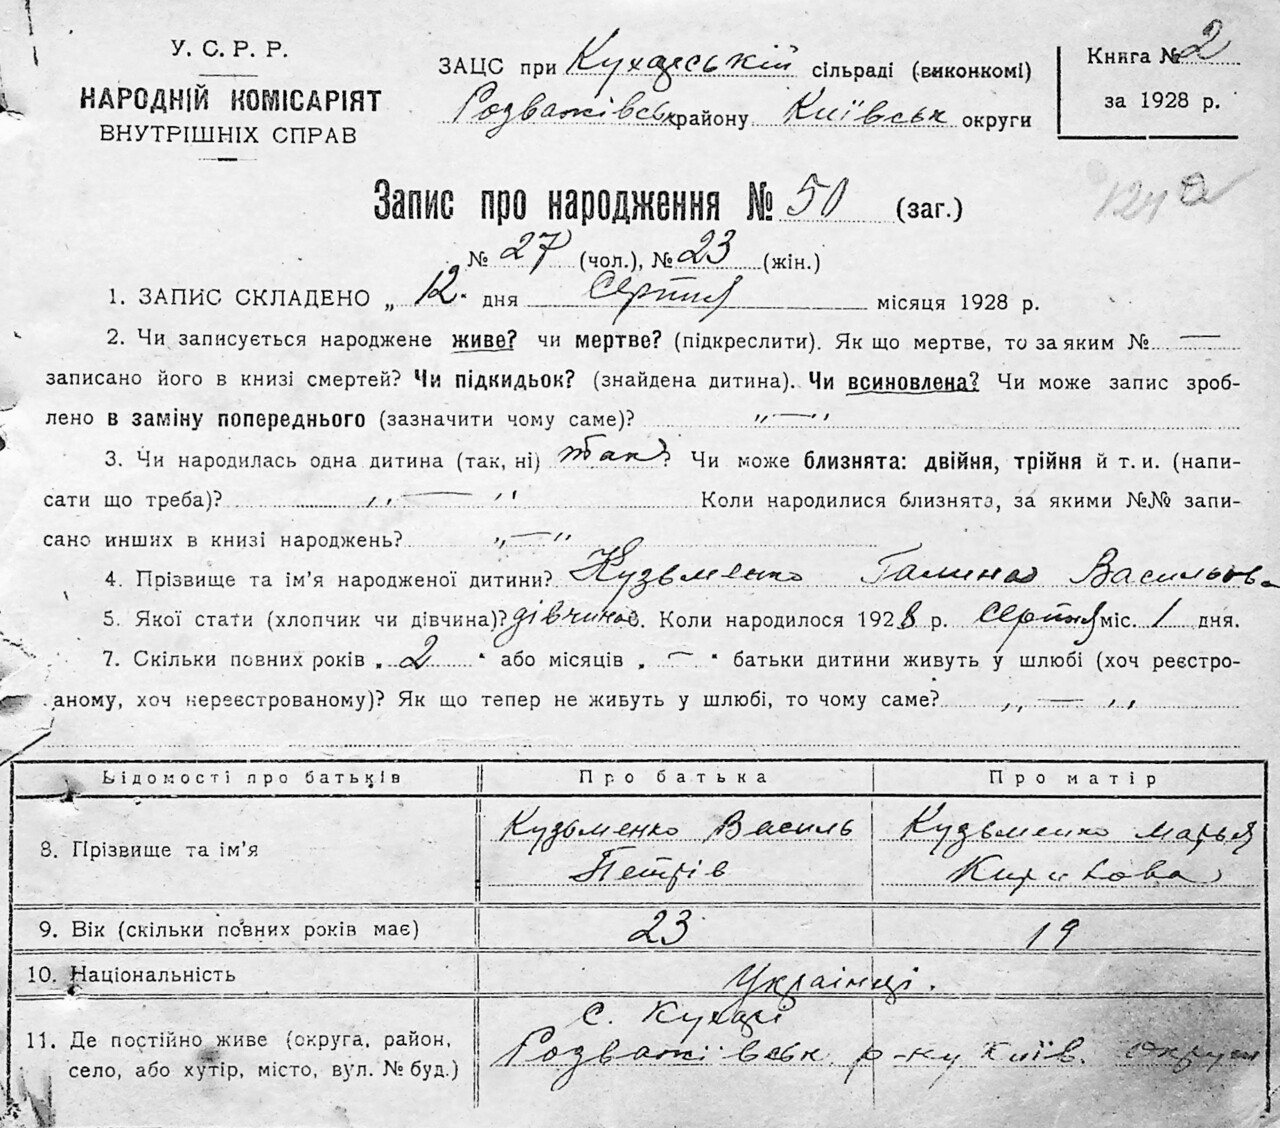 У. С. Р. Р.
НАРОДНІЙ КОМІСАРІЯТ
ВНУТРІШНІХ СПРАВ
ЗАЦС при Кухарській сільраді (виконкомі)
Розважівськ району Київськ округи
Книга № 2
за 1928 р.
Запис про народження № 50 (заг.)
№ 27 (чол.), № 23 (жін.)
1. ЗАПИС СКЛАДЕНО „ 12 " дня Серпня місяця 1928 р.
2. Чи записується народжене живе? чи мертве? (підкреслити). Як що мертве, то за яким № —
записано його в книзі смертей? Чи підкидьок? (знайдена дитина). Чи всиновлена? Чи може запис зроб-
лено в заміну попереднього (зазначити чому саме)? „—"
3. Чи народилась одна дитина (так, ні) так? Чи може близнята: двійня, трійня й т. и. (напи-
сати що треба)? „—" Коли народилися близнята, за якими №№ запи-
сано инших в книзі народжень? „—"
4. Прізвище та ім'я народженої дитини? Кузьменко Галина Васильов-
5. Якої стати (хлопчик чи дівчина)? дівчина. Коли народилося 1928 р. Серпня міс. 1 дня.
7. Скільки повних років „ 2 " або місяців „ — " батьки дитини живуть у шлюбі (хоч реєстро-
аному, хоч нереєстрованому)? Як що тепер не живуть у шлюбі, то чому саме? „—"
Відомості про батьків Про батька Про матір
8. Прізвище та ім'я Кузьменко Василь Петрів Кузьменко Марья
9. Вік (скільки повних років має) 23 19
10. Національність Українці.
11. Де постійно живе (округа, район,
село, або хутір, місто, вул. № буд.) с. Кухарі
Розважівськ р-ну Київ. округи